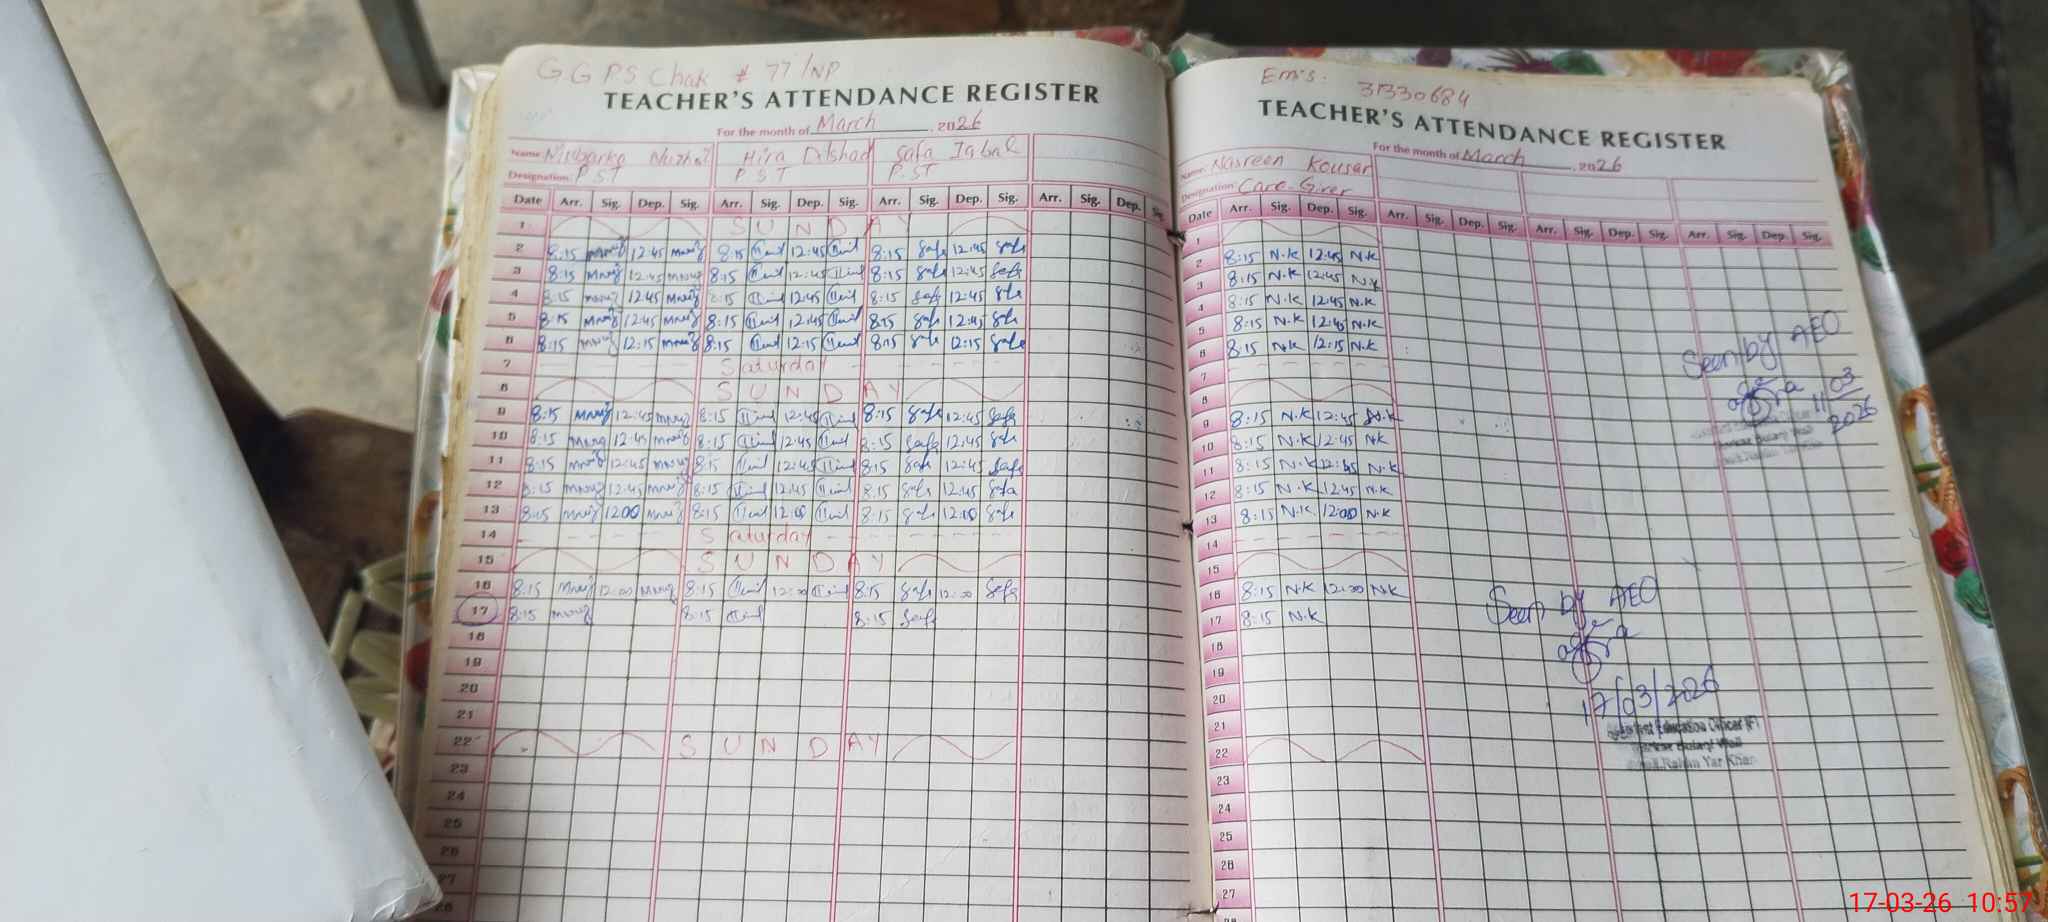 G G P S Chak # 77/NP
TEACHER'S ATTENDANCE REGISTER
For the month of March, 2026
Name: Nuzhat Hira Dilshad Safa Iqbal
Designation: P.ST P.S T P.ST
Date Arr. Sig. Dep. Sig. Arr. Sig. Dep. Sig. Arr. Sig. Dep. Sig. Arr. Sig. Dep. Sig.
1 S U N D A Y
2 8:15 12:45 8:15 12:45 8:15 Safa 12:45 Safa
3 8:15 12:45 8:15 12:45 8:15 Safa 12:45 Safa
4 8:15 12:45 8:15 12:45 8:15 Safa 12:45 Safa
5 8:15 12:45 8:15 12:45 8:15 Safa 12:45 Safa
6 8:15 12:15 8:15 12:15 8:15 Safa 12:15 Safa
7 Saturday
8 S U N D A Y
9 8:15 12:45 8:15 12:45 8:15 Safa 12:45 Safa
10 8:15 12:45 8:15 12:45 8:15 Safa 12:45 Safa
11 8:15 12:45 8:15 12:45 8:15 Safa 12:45 Safa
12 8:15 12:45 8:15 12:45 8:15 Safa 12:45 Safa
13 8:15 12:00 8:15 12:00 8:15 Safa 12:00 Safa
14 Saturday
15 S U N D A Y
16 8:15 12:00 8:15 12:00 8:15 Safa 12:00 Safa
17 8:15 8:15 8:15 Safa
18
19
20
21
22 S U N D A Y
23
24
25
26
27
28
Emis: 31330684
TEACHER'S ATTENDANCE REGISTER
For the month of March, 2026
Name: Nasreen Kousar
Designation: Care Giver
Date Arr. Sig. Dep. Sig. Arr. Sig. Dep. Sig. Arr. Sig. Dep. Sig. Arr. Sig. Dep. Sig.
1
2 8:15 N.K 12:45 N.K
3 8:15 N.K 12:45 N.K
4 8:15 N.K 12:45 N.K
5 8:15 N.K 12:45 N.K
6 8:15 N.K 12:15 N.K
7
8
9 8:15 N.K 12:45 N.K
10 8:15 N.K 12:45 N.K
11 8:15 N.K 12:45 N.K
12 8:15 N.K 12:45 N.K
13 8:15 N.K 12:00 N.K
14
15
16 8:15 N.K 12:00 N.K
17 8:15 N.K
18
19
20
21
22
23
24
25
26
27
Seen by AEO
11/03
2026
Seen by AEO
17/03/2026
Assistant Education Officer (F)
Rahim Yar Khan
17-03-26 10:57